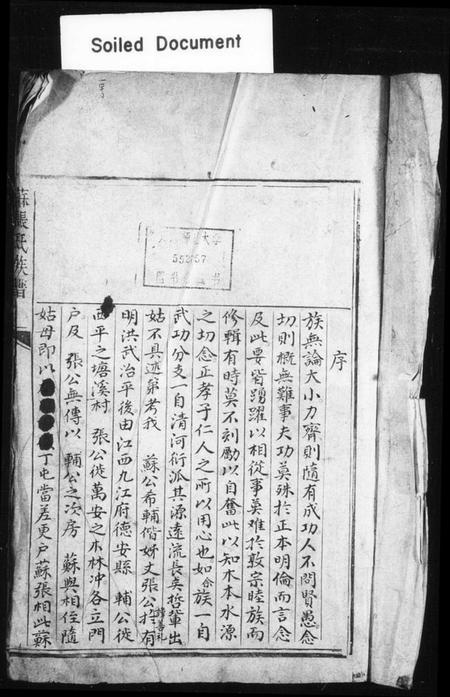 Soiled Document
蘇張氏族譜
大学
序
族無論大小力齊則隨有成功人不問賢愚念
切則概無難事夫功莫殊於正本明倫而言念
及此要皆踴躍以相從事莫难於敦宗睦族而
修輯有時莫不刻勵以自奮此以知木本水源
之切念正孝子仁人之所以用心也如佘族一自
武功分支一自清河衍派其源遠流長英哲輩出
姑不具述弟考我 蘇公希輔偕姊丈張公於有
明洪武治平後由江西九江府德安縣 輔公徙
西平之塘溪村 張公徙萬安之木林冲各立門
户及 張公無傳以 輔公之次房 蘇與相侄隨
姑母即以 丁屯當差更户蘇張相此蘇